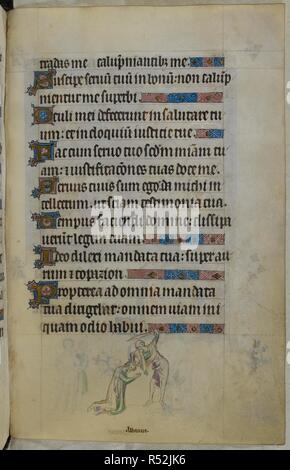 tradas me calūpniantibz me.
Suscipe seruū tuū in bonū: non calūp
nientur me superbi.
Oculi mei defecerunt in salutare tu
um: et in eloquium iusticie tue.
Fac cum seruo tuo scdm miam tu
am: et iustificacōnes tuas doce me.
Seruus tuus sum ego da michi in
tellectum: ut sciam testimonia tua.
Tempus faciendi domine: dissipa
uerunt legem tuam.
Ideo dilexi mandata tua: super au
rum et topazion.
Propterea ad omnia mandata
tua dirigebar: omnem uiam ini
quam odio habui.
alamy
www.alamy.com - R52JK6